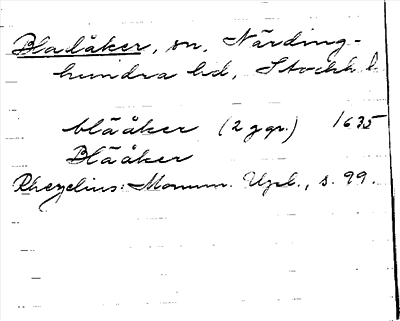 Bladåker, sn, Närding-
hundra hd, Stockh. l.
blåäker (2 ggr.) 1635
Blääker
Rhezelius: Monum. Upl., s. 99.